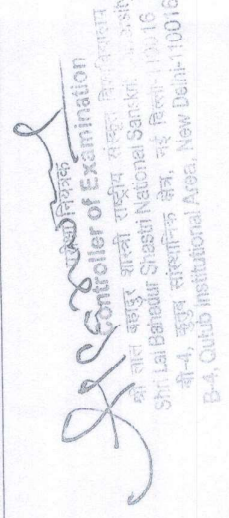 परीक्षा नियंत्रक
Controller of Examination
श्री लाल बहादुर शास्त्री राष्ट्रीय संस्कृत
Shri Lal Bahadur Shastri National Sanskrit
बी-4, कुतुब सांस्थानिक क्षेत्र, नई दिल्ली-110016
B-4, Qutub Institutional Area, New Delhi-110016